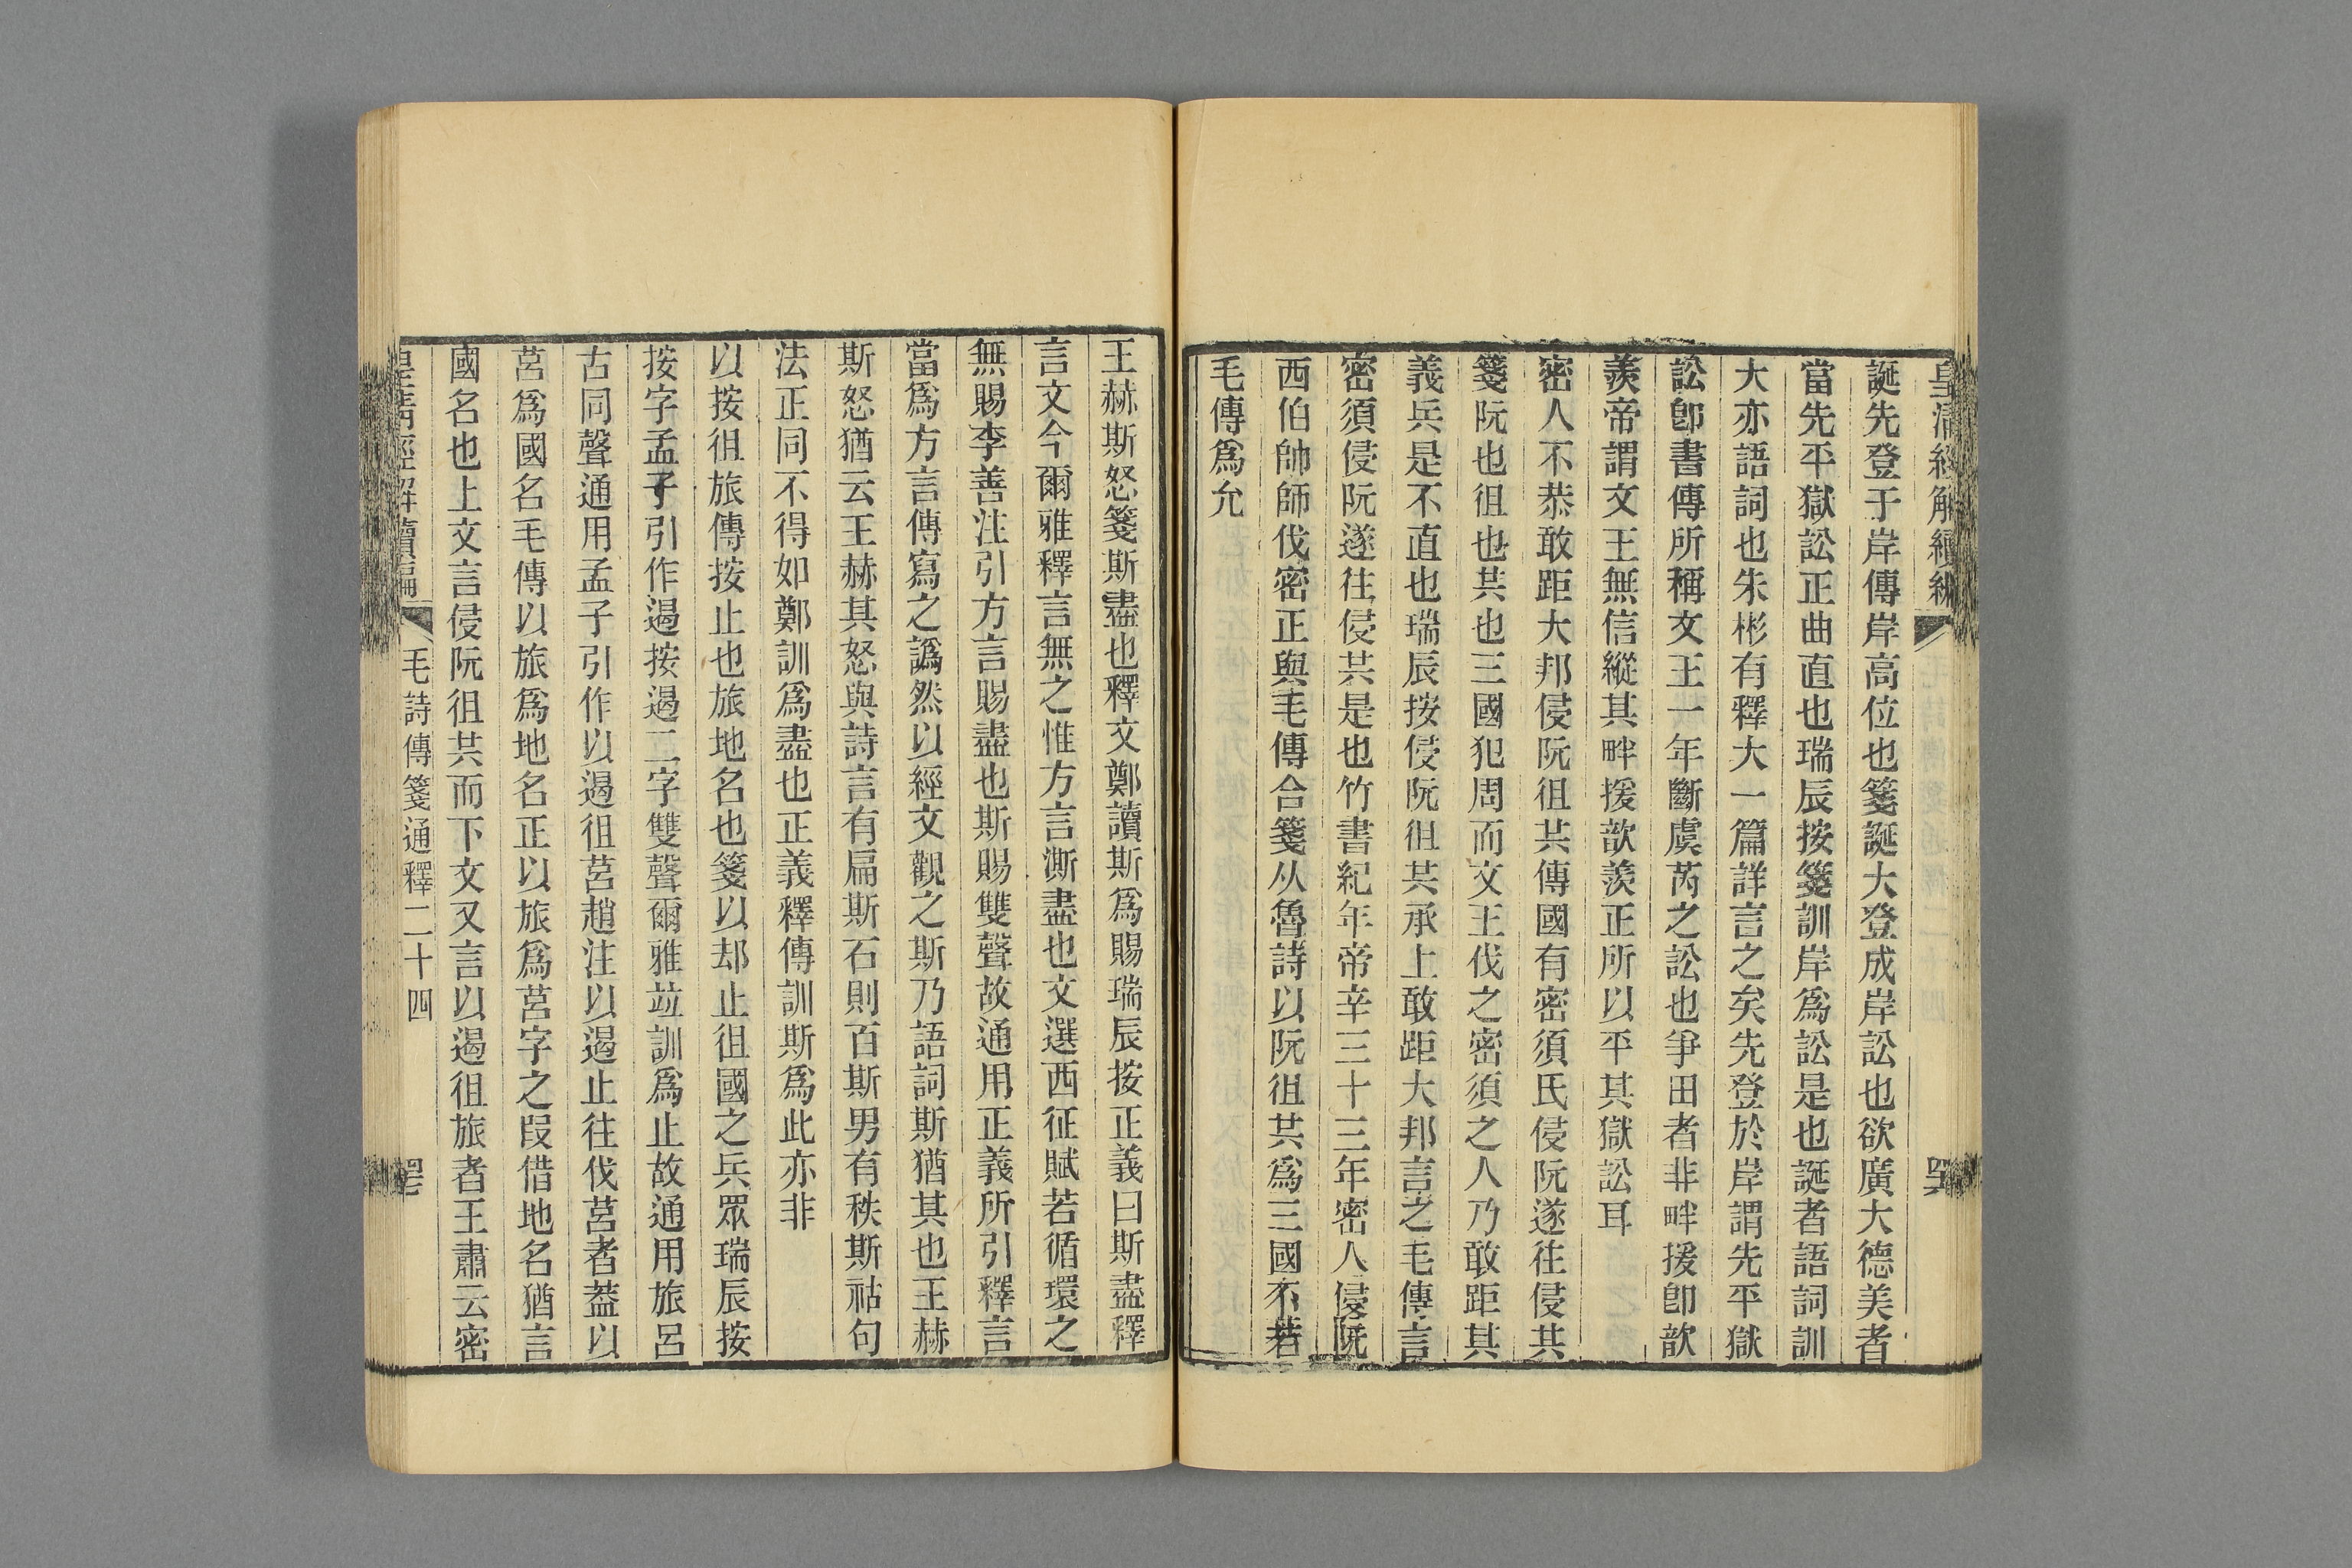 皇清經解續編
誕先登于岸傳岸高位也箋誕大登成岸訟也欲廣大德美者
當先平獄訟正曲直也瑞辰按箋訓岸爲訟是也誕者語詞訓
大亦語詞也朱彬有釋大一篇詳言之矣先登於岸謂先平獄
訟卽書傳所稱文王一年斷虞芮之訟也爭田者非畔援卽歆
羨帝謂文王無信縱其畔援歆羨正所以平其獄訟耳
密人不恭敢距大邦侵阮徂共傳國有密須氏侵阮遂往侵共
箋阮也徂也共也三國犯周而文王伐之密須之人乃敢距其
義兵是不直也瑞辰按侵阮徂共承上敢距大邦言之毛傳言
密須侵阮遂往侵共是也竹書紀年帝辛三十三年密人侵阮
西伯帥師伐密正與毛傳合箋从魯詩以阮徂共爲三國不若
毛傳爲允
王赫斯怒箋斯盡也釋文鄭讀斯爲賜瑞辰按正義曰斯盡釋
言文今爾雅釋言無之惟方言澌盡也文選西征賦若循環之
無賜李善注引方言賜盡也斯賜雙聲故通用正義所引釋言
當爲方言傳寫之譌然以經文觀之斯乃語詞斯猶其也王赫
斯怒猶云王赫其怒與詩言有扁斯石則百斯男有秩斯祜句
法正同不得如鄭訓爲盡也正義釋傳訓斯爲此亦非
以按徂旅傳按止也旅地名也箋以却止徂國之兵眾瑞辰按
按字孟子引作遏按遏二字雙聲爾雅竝訓爲止故通用旅呂
古同聲通用孟子引作以遏徂莒趙注以遏止往伐莒者葢以
莒爲國名毛傳以旅爲地名正以旅爲莒字之叚借地名猶言
國名也上文言侵阮徂共而下文又言以遏徂旅者王肅云密
皇清經解續編
毛詩傳箋通釋二十四